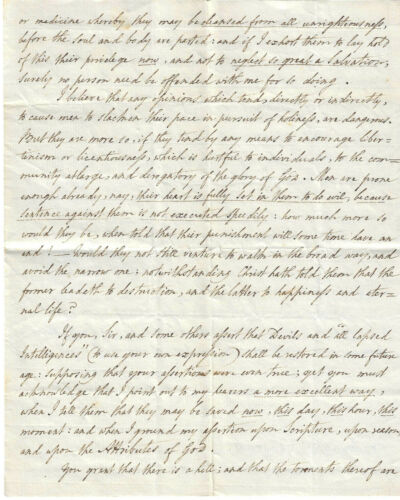 or medicine whereby they may be cleansed from all unrightiousness,
before the soul and body are parted: and if I exhort them to lay hold
of this their privilege now, and not to neglect so great a salvation,
surely no person need be offended with me for so doing.
I believe that any opinions which tend, directly or indirectly,
to cause men to slacken their pace in pursuit of holiness, are dangerous.
But they are more so, if they tend by any means to encourage liber-
tinism or licentiousness, which is hurtful to individuals, to the com-
munity at large, and dirogatory of the glory of God. Men are prone
enough already, nay, their heart is fully set in them to do evil, because
sentence against them is not executed speedily: how much more so
would they be, when told that their punishment will some time have an
end! — Would they not still venture to walk in the broad way, and
avoid the narrow one; notwithstanding Christ hath told them that the
former leadeth to destruction, and the latter to happiness and eter-
nal life?
If you, Sir, and some others assert that Devils and "all lapsed
Intelligences" (to use your own expression) shall be restored in some future
age: supposing that your assertions were even true; yet you must
acknowledge that I point out to my hearers a more excellent way,
when I tell them that they may be saved now, this day, this hour, this
moment: and when I ground my assertion upon Scripture, upon reason,
and upon the Attributes of God.
You grant that there is a hell: and that the torments thereof are